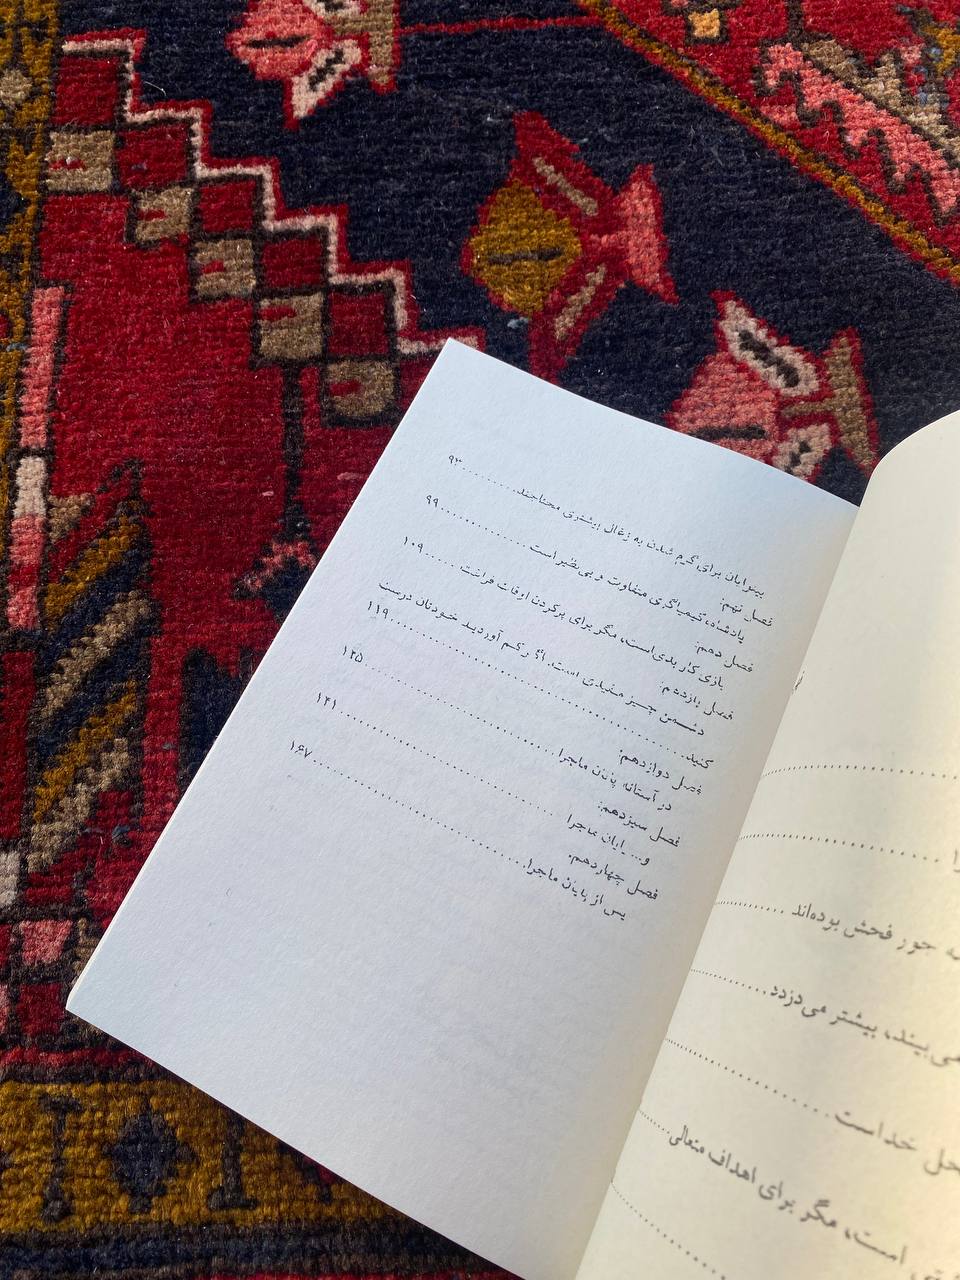 بینوایان برای گرم شدن به زغال بیشتری محتاجند..........۹۳
فصل نهم:
پادشاه، کیمیاگری متفاوت و بی‌نظیر است..............۹۹
فصل دهم:
بازی کار بدی است، مگر برای پرکردن اوقات فراغت......۱۰۹
فصل یازدهم:
دشمن چیز مفیدی است. اگر کم آوردید خودتان درست
کنید...............................................۱۱۹
فصل دوازدهم:
در آستانه پایان ماجرا..............................۱۲۵
فصل سیزدهم:
و... پایان ماجرا..............................۱۴۱
فصل چهاردهم:
پس از پایان ماجرا..............................۱۶۷
جور فحش بوده‌اند............
می‌بیند، بیشتر می‌دزدد............
خداست............
است، مگر برای اهداف متعالی